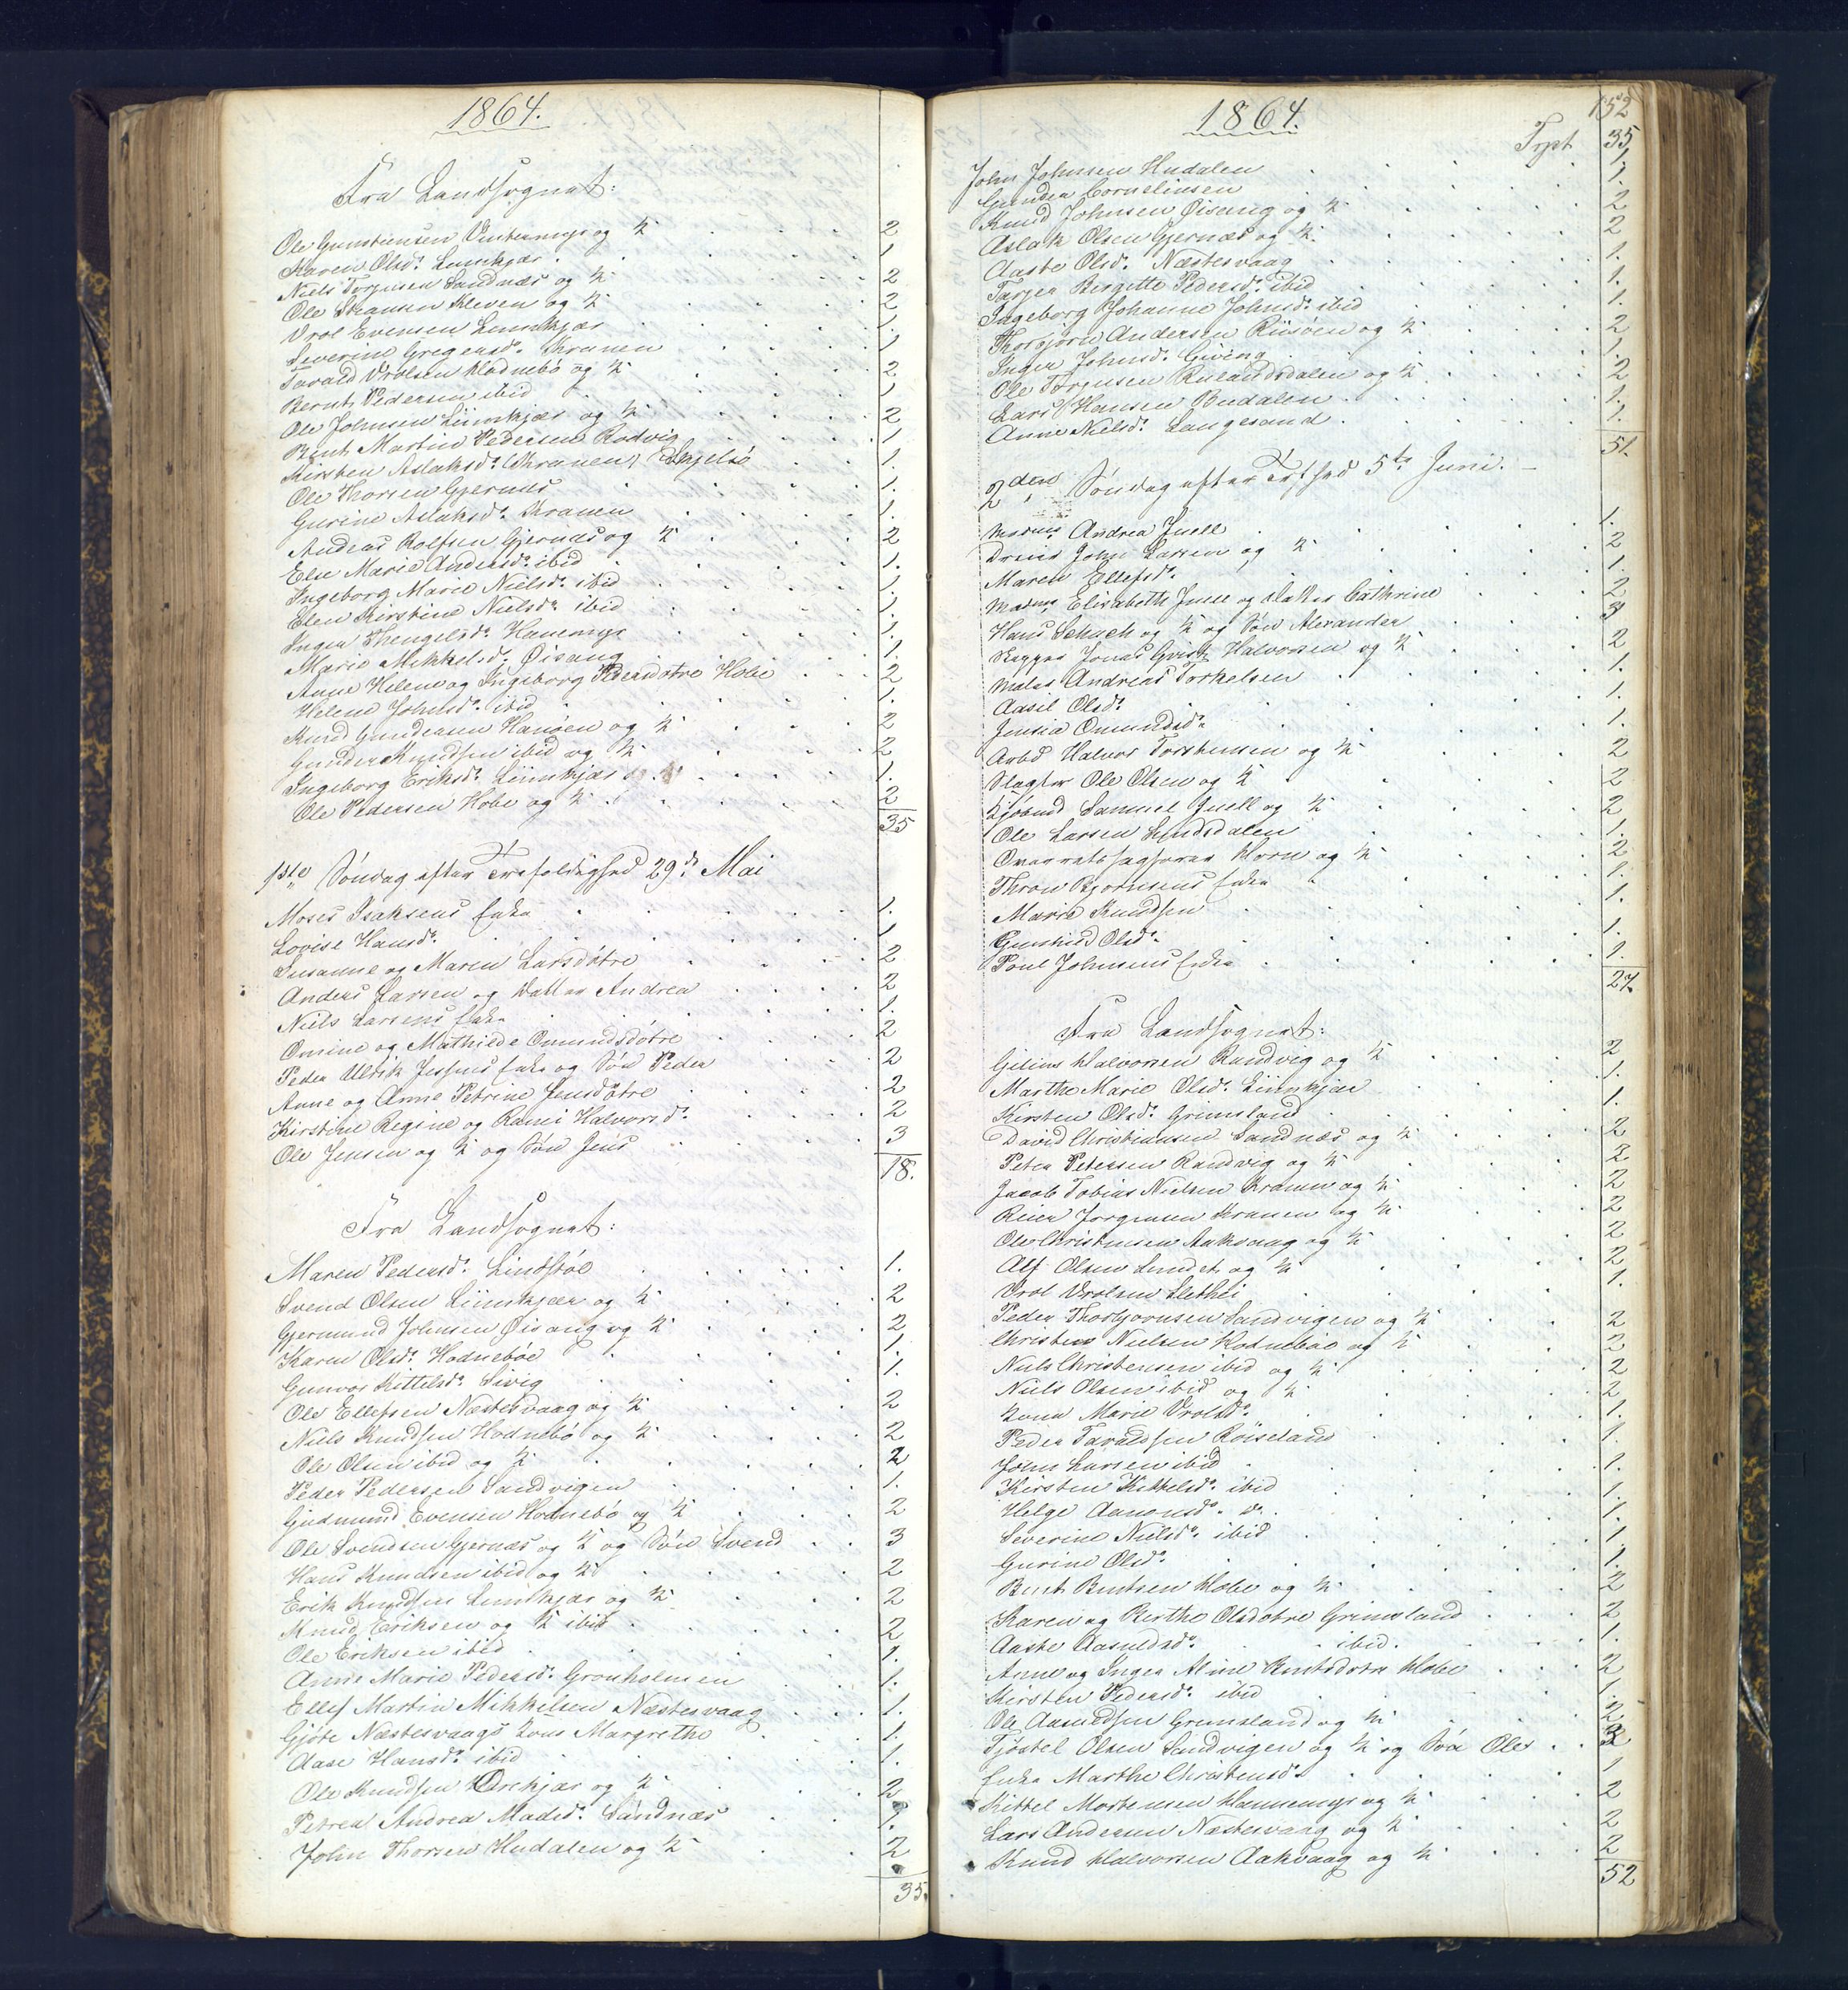 1864.
Fra Landsognet:
Ole Gunstensen Vintermyr og K. 2
Karen Olsd. Limkjær 1
Niels Torjusen Sandnæs og K 2
Ole Kleven og K 2
Vrol Evensen Limkjær 1.
Severine Gregersd. Kranen 1
Tarald Vrolsen Hodnebö og K 2
Bernt Pedersen ibid 1
Ole Johnsen Liimkjær og K 2
Bent Martin Pedersen Rødvig 1
Kirsten Aslaksd. (Kranen) 1.
Ole Thorsen Gjernæs 1.
Gurine Aslaksd. Kranen 1.
Andreas Rolfsen Gjernæs og K 2
Else Marie Andersd. ibid 1.
Ingeborg Marie Nielsd. ibid 1.
Elen Kirstine Nielsd. ibid 1.
Inger Thengelsd. Hanemyr 1.
Marie Mikkelsd. Øisang 1.
Anne Helene og Ingeborg Pedersdøtre Hobe 2
Helene Johnsd. ibid 1.
Knud Gundersen Hanøen og K 2
Gunder Knudsen ibid og K 2
Ingeborg Eriksd. Liimkjær 1.
Ole Pedersen Hobe og K 2
35
1ste Söndag efter Trefoldighed 29de Mai
Moses Isaksens Enke 1.
Lovise Hansd. 1
Susanne og Maren Larsdøtre 2
Anders Larsen og Datter Andrea 2
Niels Larsens Enke 1.
Omine og Mathilde Omundsdøtre 2
Peder Ulrik Jessens Enke og Sön Peder 2
Anne og Anne Petrine Jensdøtre 2
Kirstine Regine og Rami Halvorsd. 2
Ole Jensen og K og Sön Jens 3
18.
Fra Landsognet:
Maren Pedersd. Lindstöl 1.
Svend Olsen Liimkjær og K 2
Gjermund Johnsen Øisang og K 2
Karen Olsd. Hodneböe 1.
Gunvor Kittelsd. Sivig 1.
Ole Ellefsen Næstesvaag og K 2
Niels Knudsen Hodnebö og K 2
Ole Olsen ibid og K 2
Peder Pedersen Sandvigen 1.
Gudmund Evensen Hodnebö og K 2
Ole Svendsen Gjernæs og K og Sön Svend 3
Hans Knudsen ibid og K 2
Erik Knudsen Limkjær og K 2
Knud Eriksen og K ibid 2
Ole Eriksen ibid 1.
Anne Marie Pedersd. Gronholmen 1.
Ellef Martin Mikkelsen Næstesvaag 1.
Gjöte Næstesvaags Kone Margrethe 1.
Aase Hansd. ibid 1.
Ole Knudsen Orekjær og K 2
Petrea Andrea Madsd. Sandnæs 1.
John Thorsen Hudalen og K 2
35.
1864.
152
Trpt 35
John Johnsen Hudalen 1.
Gunder Corneliusen 1.
Knud Johnsen Øisang og K 2
Aslak Olsen Gjernæs og K 2
Aaste Olsd. Næstesvaag 1.
Birgitte Pedersd. ibid 1.
Ingeborg Johanne Johnsd. ibid 1.
Thorbjörn Andersen Riisöen og K 2
Inger Johnsd. Giving 1.
Ole Törgensen og K 2
Lars Hansen Budalen 1.
Anne Nielsd. Langesand 1.
51.
2den Söndag efter Trefhed 5te Juni.
Madme Andrea Juell 1.
John Larsen og K 2
Maren Ellefsd. 1.
Madme Elisabeth Juell og Datter Cathrine 2
Hans Schach og K og Sön Alexander 3
Skipper Jonas Halvorsen og K 2
Maler Andreas Torkelsen 1.
Aasil Olsd. 1.
Jensia Omundsd. 1.
Arbd Halvor Torstensen og K 2
Slagter Ole Olsen og K 2
Kjöbmd Samuel Juell og K 2
Ole Larsen Lundsdalen 1.
Overretssagförer Horn og K 2
Thron Bjornsens Enke 1.
Marie Knudsen 1.
Gunhild Olsd. 1.
Poul Johnsens Enke 1.
27.
Fra Landsognet:
Gilius Halvorsen Randvig og K 2
Marthe Marie Olsd. Liimkjær 1.
Kirsten Olsd. Grimsland 1.
David Christiansen Sandnæs og K 2
Peter Petersen Randvig og K 2
Jacob Tobias Nielsen Kranen og K 2
Reier Jorgensen Kranen og K 2
Ole Christensen Aakvaag og K 2
Alf Olsen Lundet og K 2
Vrol Vrolsen Slethei 1.
Peder Thorbjornsen Sandvigen og K 2
Christen Nielsen Hodneböe og K 2
Niels Christensen ibid og K 2
Niels Olsen ibid og K 2
Kone Marie Vrolsd. 1.
Peder Taraldsen Röiseland 1.
John Larsen ibid 1.
Kirsten Kittelsd. ibid 1.
Helge Aanonsd. do. 1.
Severine Nielsd. ibid 1.
Gurine Olsd. 1.
Bent Bentsen Hobe og K 2
Karen og Berthe Olsdøtre Grimsland 2
Aaste Aasuldsd. ibid. 1.
Anne og Inger Aline Bentsdøtre Hobe 2
Kirsten Pedersd. ibid 1.
Ole Aasuldsen Grimsland og K 2
Tjöstel Olsen Sandvigen og K og Sön Ole 3
Enke Marthe Christensd. 1
Kittel Mortensen Hannemyr og K 2
Lars Andersen Næstesvaag og K 2
Knud Halvorsen Aakvaag og K 2
52